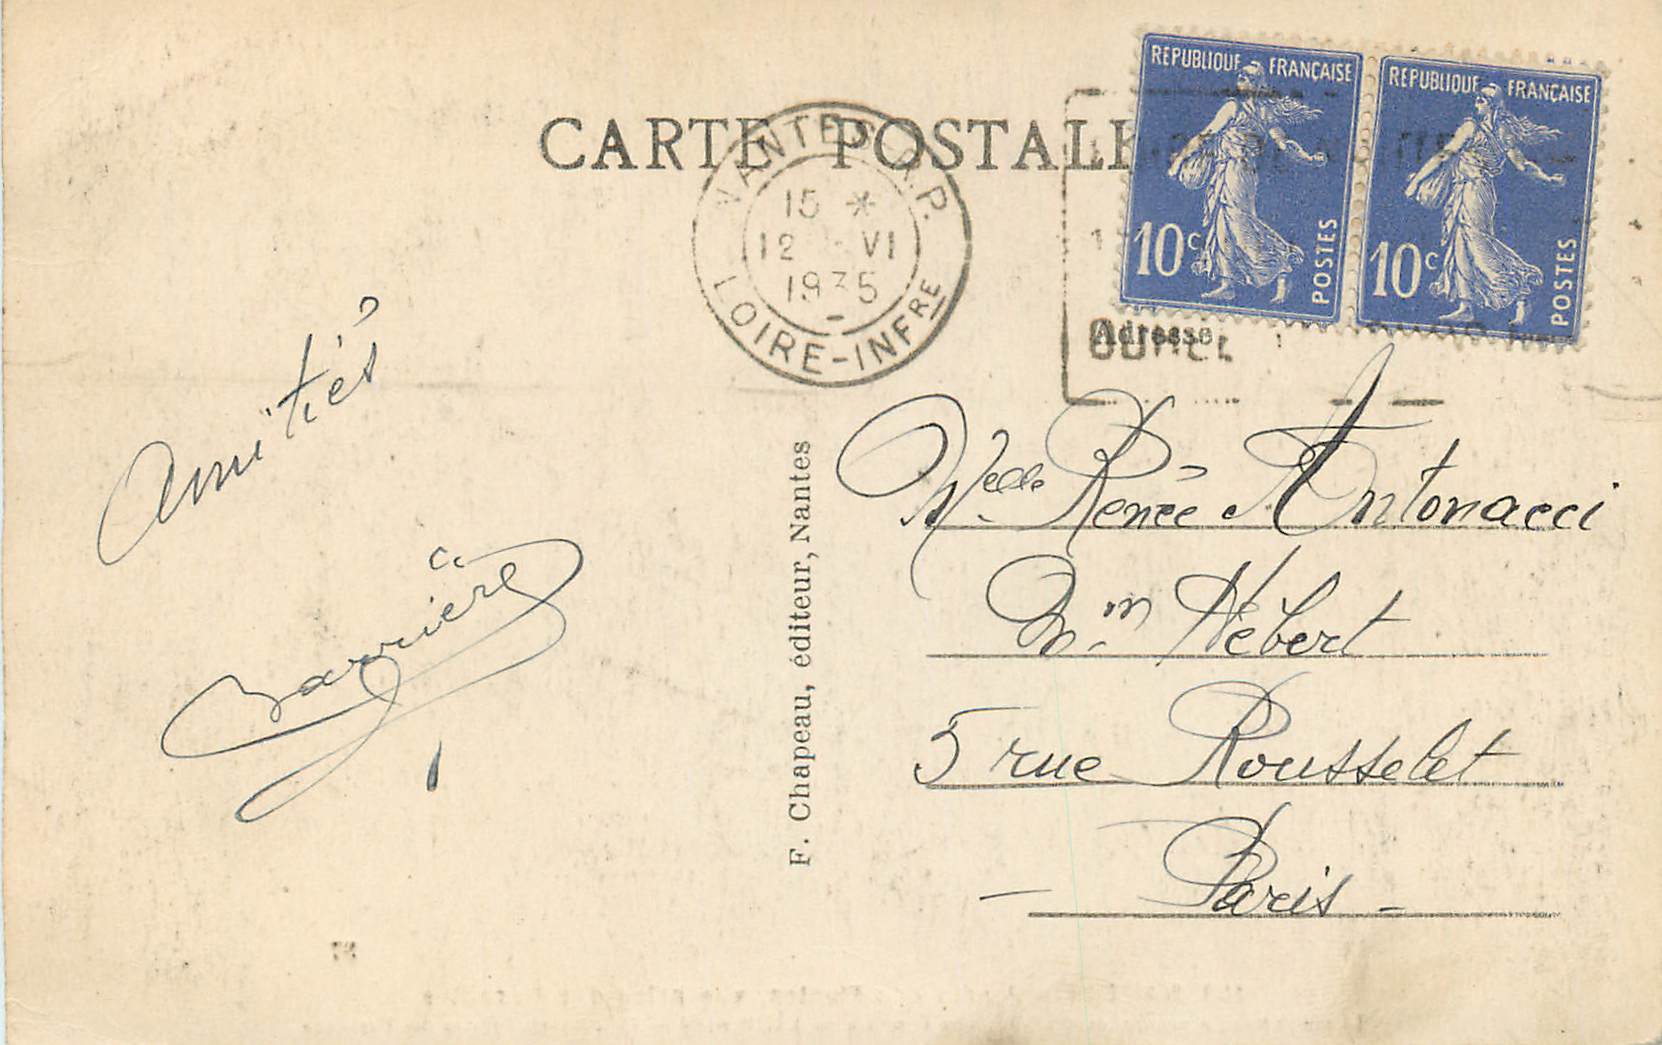 CARTE POSTALE
NANTES R.P.
15 *
12 VI
1935
LOIRE-INFRE
REPUBLIQUE FRANÇAISE
10c
POSTES
REPUBLIQUE FRANÇAISE
10c
POSTES
Adresse
Amitiés
Barrière
F. Chapeau, éditeur, Nantes
Melle Renée Antonacci
Mm Hébert
5 rue Rousselet
- Paris -